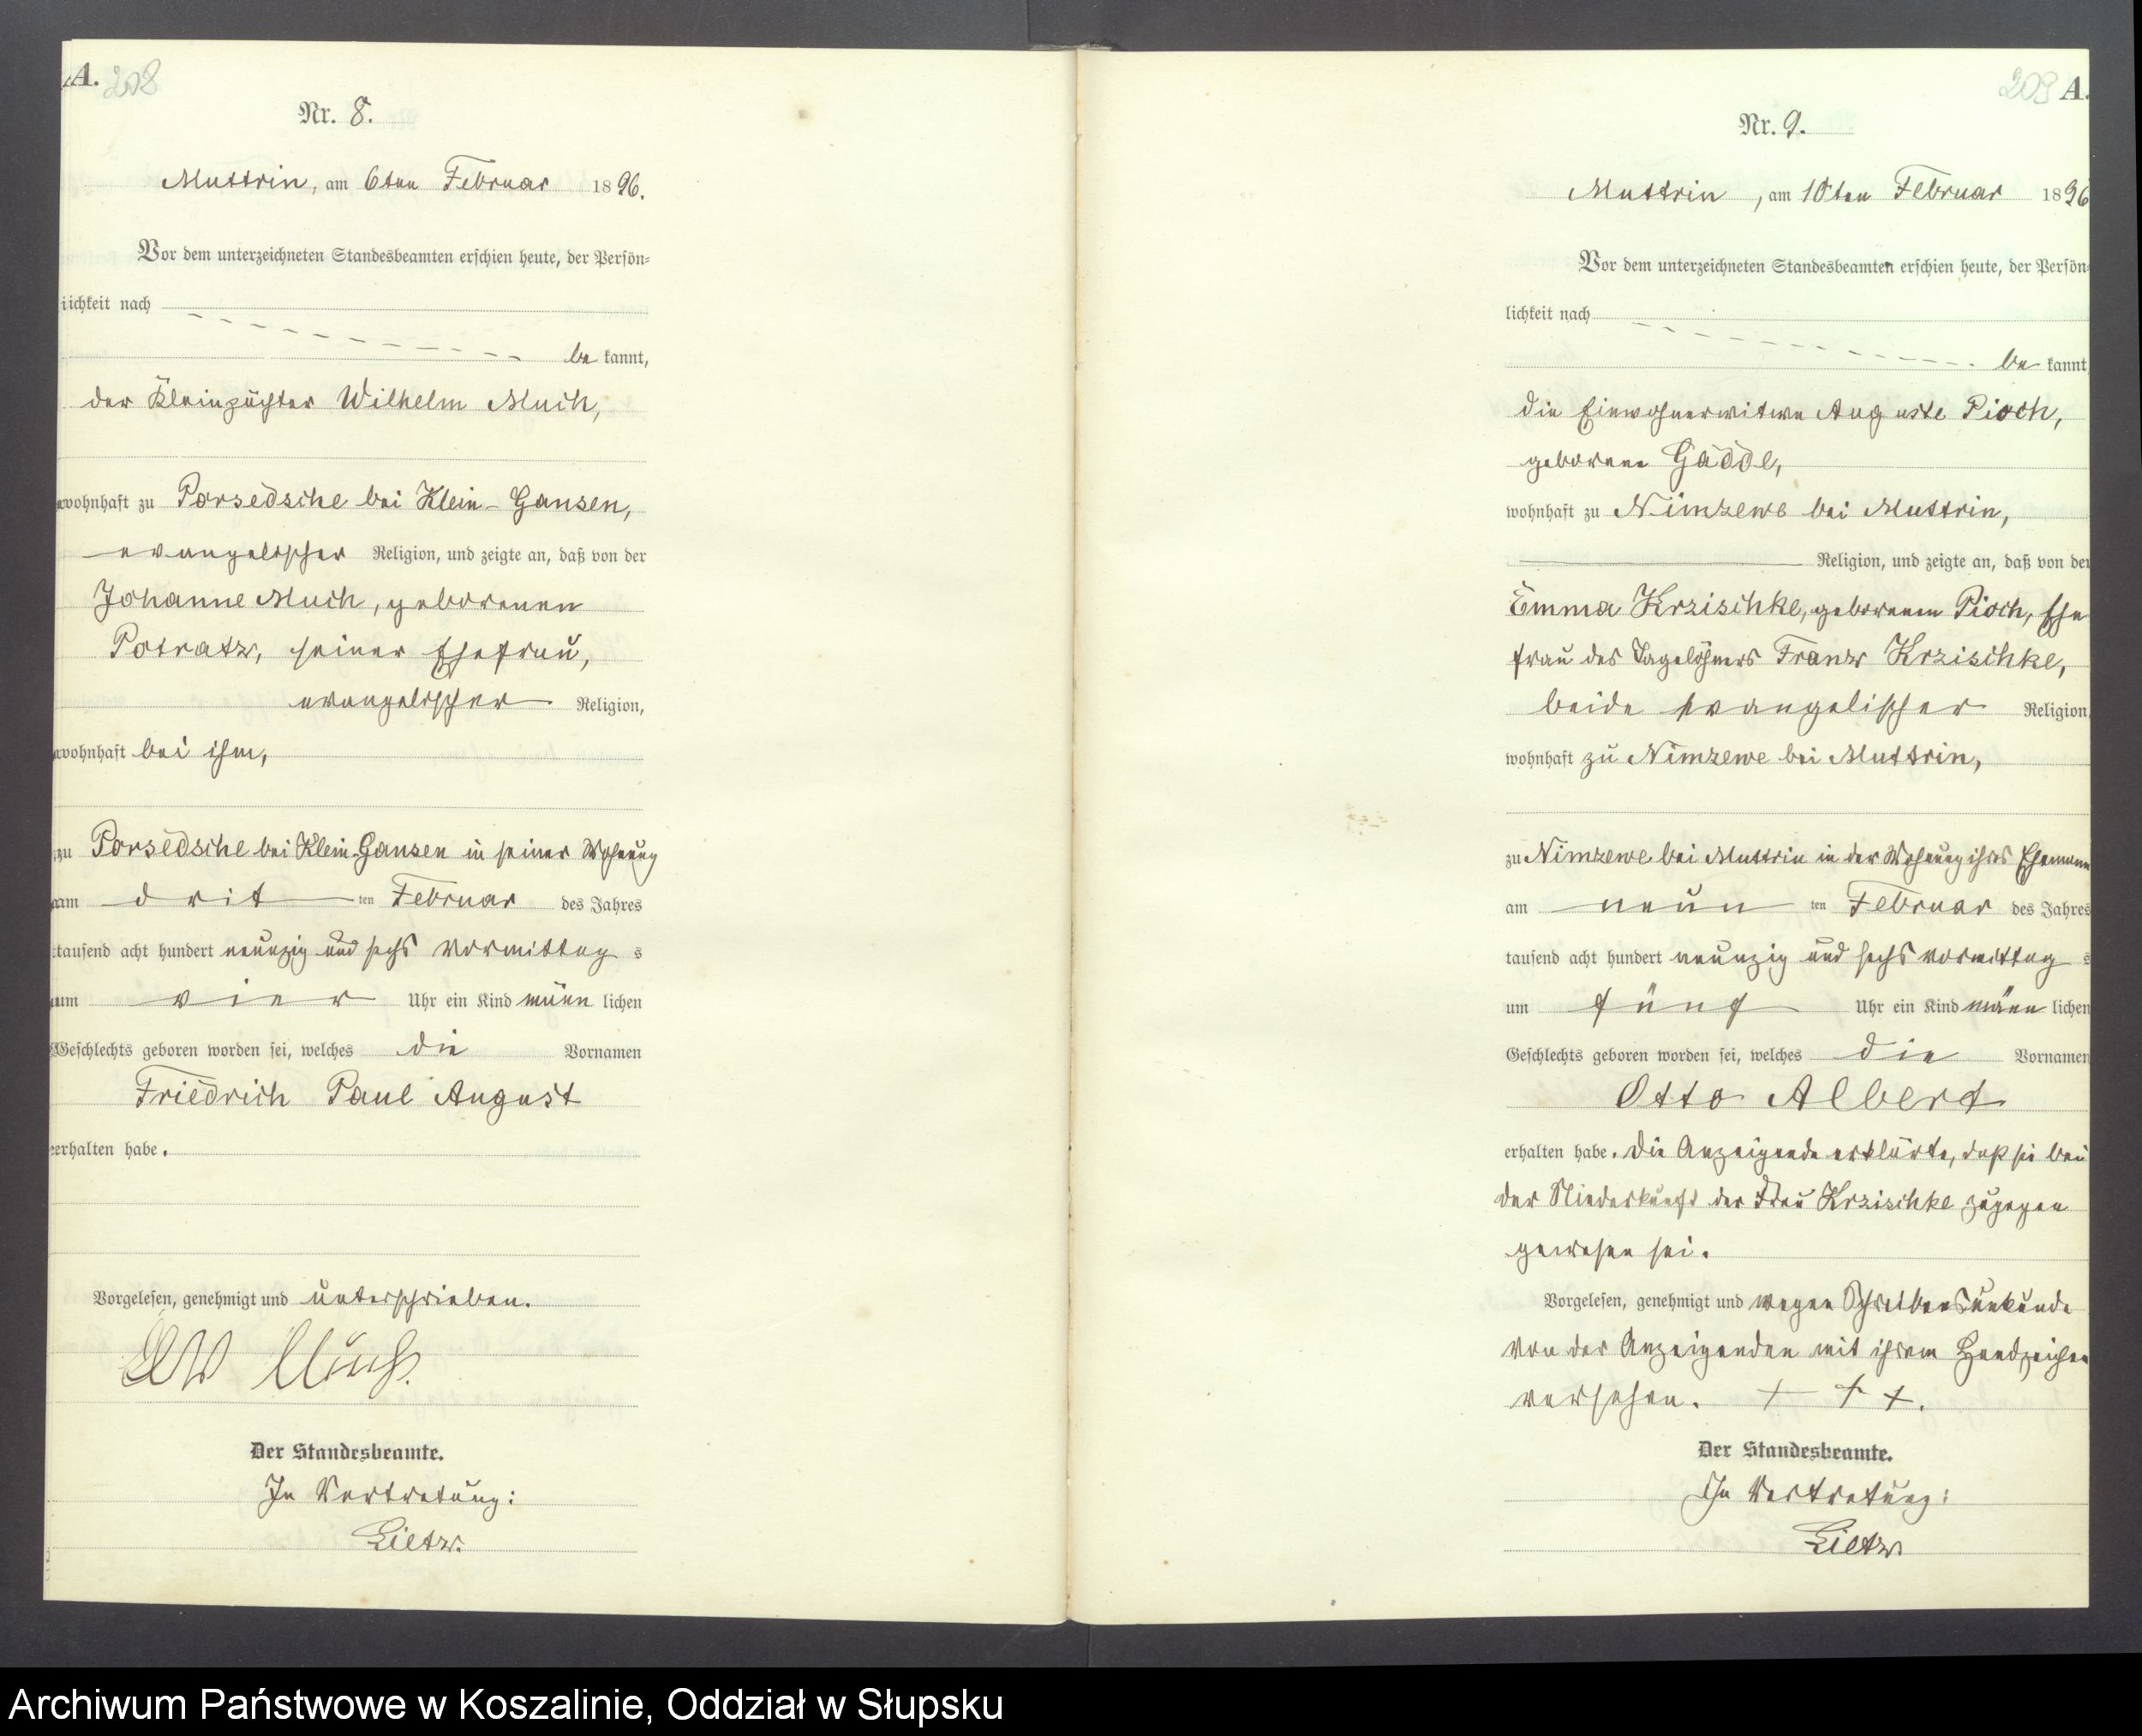 A. 208
Nr. 8.
Muttrin, am 6ten Februar 1896.
Vor dem unterzeichneten Standesbeamten erschien heute, der Persön-
lichkeit nach
be kannt,
der Kleinpächter Wilhelm Much,
wohnhaft zu Porsedsche bei Klein-Gansen,
evangelischer Religion, und zeigte an, daß von der
Johanne Much, geborenen
Potratz, seiner Ehefrau,
evangelischer Religion,
wohnhaft bei ihm,
zu Porsedsche bei Klein Gansen in seiner Wohnung
am drit ten Februar des Jahres
tausend acht hundert neunzig und sechs vormittag s
um vier Uhr ein Kind männ lichen
Geschlechts geboren worden sei, welches die Vornamen
Friedrich Paul August
erhalten habe.
Vorgelesen, genehmigt und unterschrieben.
W Much.
Der Standesbeamte.
In Vertretung:
Lietz.
209 A.
Nr. 9.
Muttrin, am 10ten Februar 1896
Vor dem unterzeichneten Standesbeamten erschien heute, der Persön-
lichkeit nach
be kannt,
die Einwohnerwitwe Auguste Pioch,
geborene Gädde,
wohnhaft zu Nimzewe bei Muttrin,
Religion, und zeigte an, daß von der
Emma Krzischke, geborenen Pioch, Ehe
frau des Tagelöhners Franz Krzischke,
beide evangelischer Religion,
wohnhaft zu Nimzewe bei Muttrin,
zu Nimzewe bei Muttrin in der Wohnung ihres Ehemann
am neun ten Februar des Jahres
tausend acht hundert neunzig und sechs vormittag s
um fünf Uhr ein Kind männ lichen
Geschlechts geboren worden sei, welches die Vornamen
Otto Albert
erhalten habe. Die Anzeigende erklärte, daß sie bei
der Niederkunft der Frau Krzischke zugegen
gewesen sei.
Vorgelesen, genehmigt und wegen Schreibensunkunde
von der Anzeigenden mit ihrem Handzeichen
versehen. + + +.
Der Standesbeamte.
In Vertretung:
Lietz.
Archiwum Państwowe w Koszalinie, Oddział w Słupsku